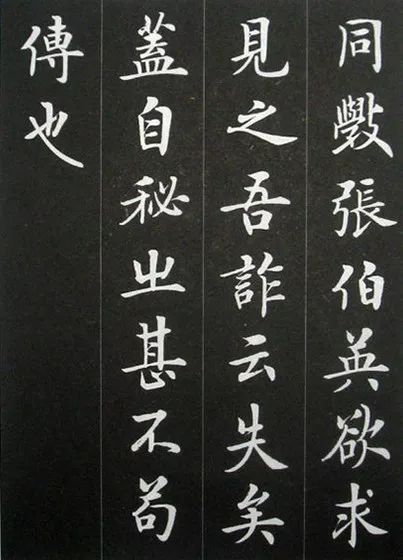 同斅張伯英欲求
見之吾詐云失矣
蓋自秘之甚不苟
傳也